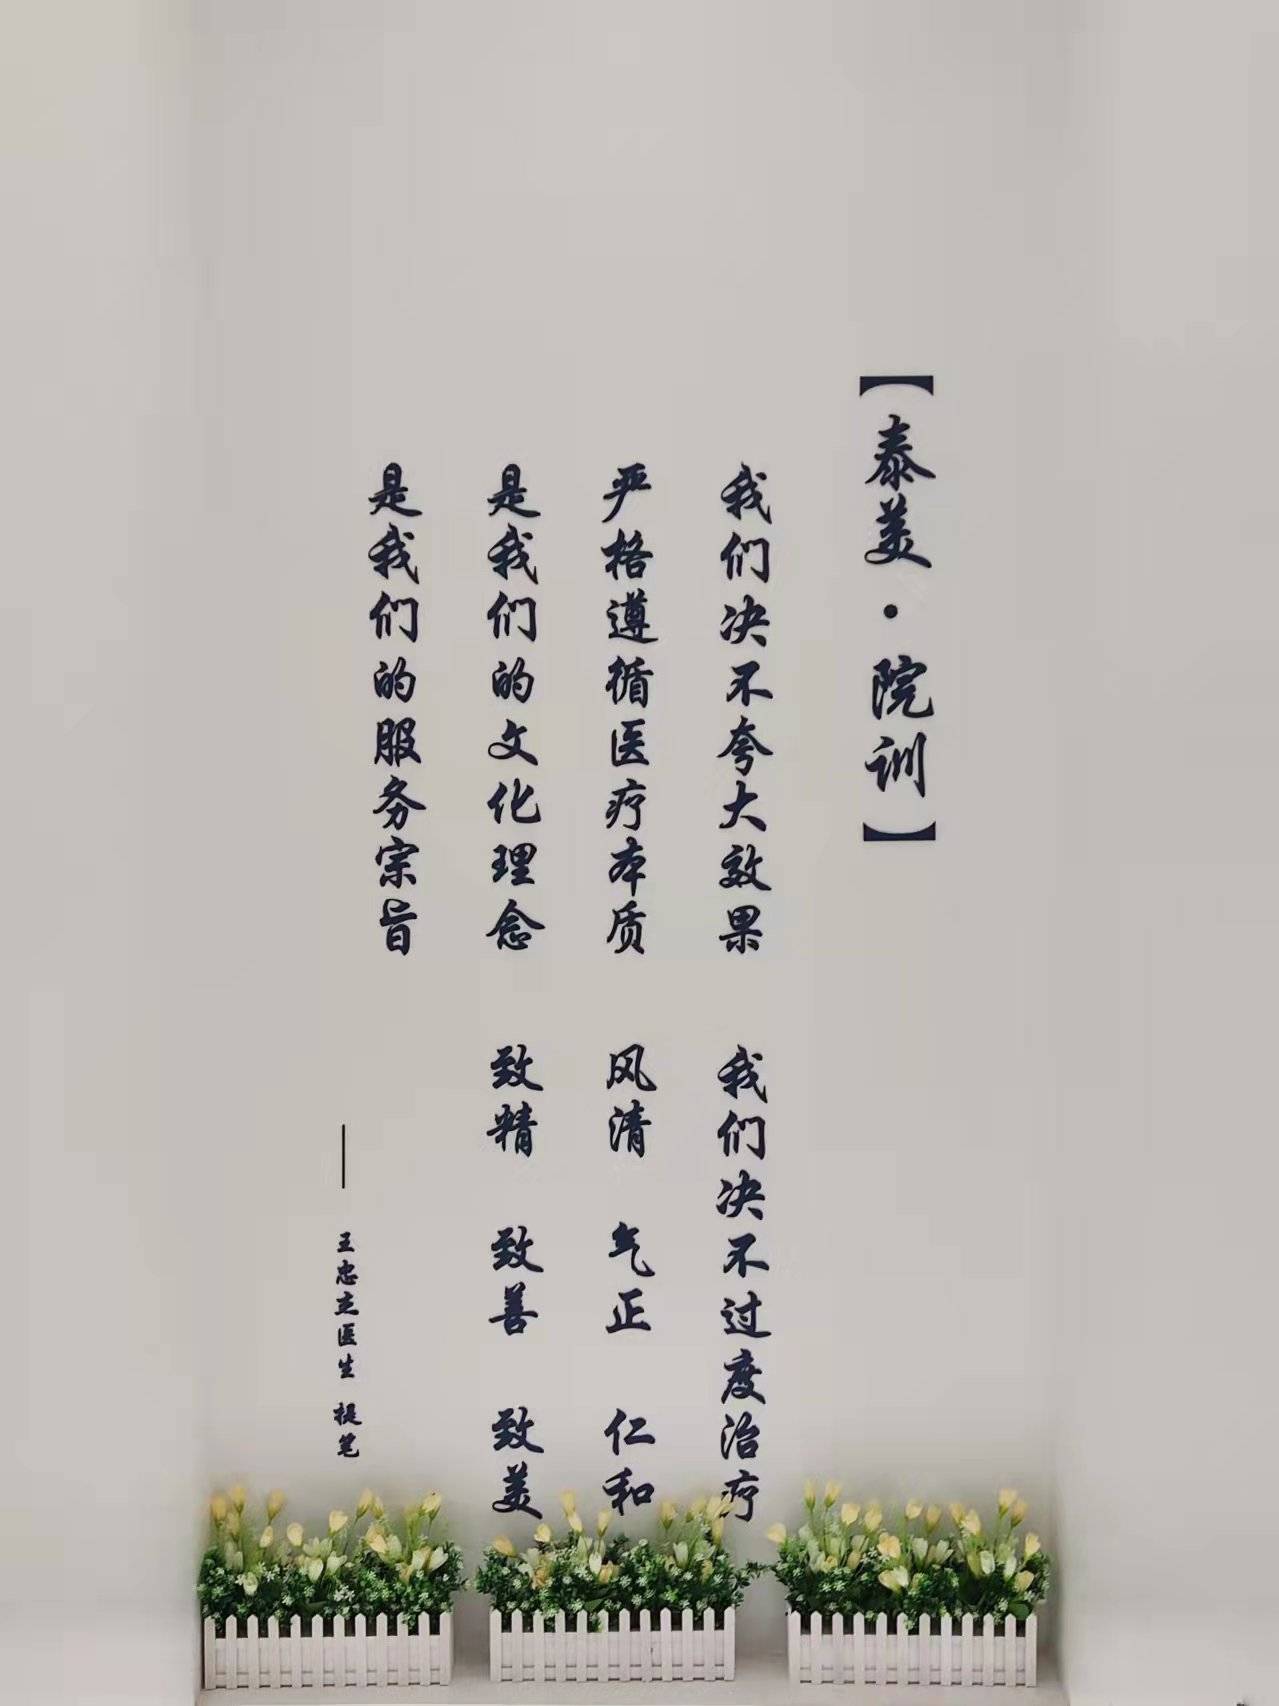 【泰美·院训】
我们决不夸大效果 我们决不过度治疗
严格遵循医疗本质 风清 气正 仁和
是我们的文化理念 致精 致善 致美
是我们的服务宗旨
—— 王忠立医生 提笔